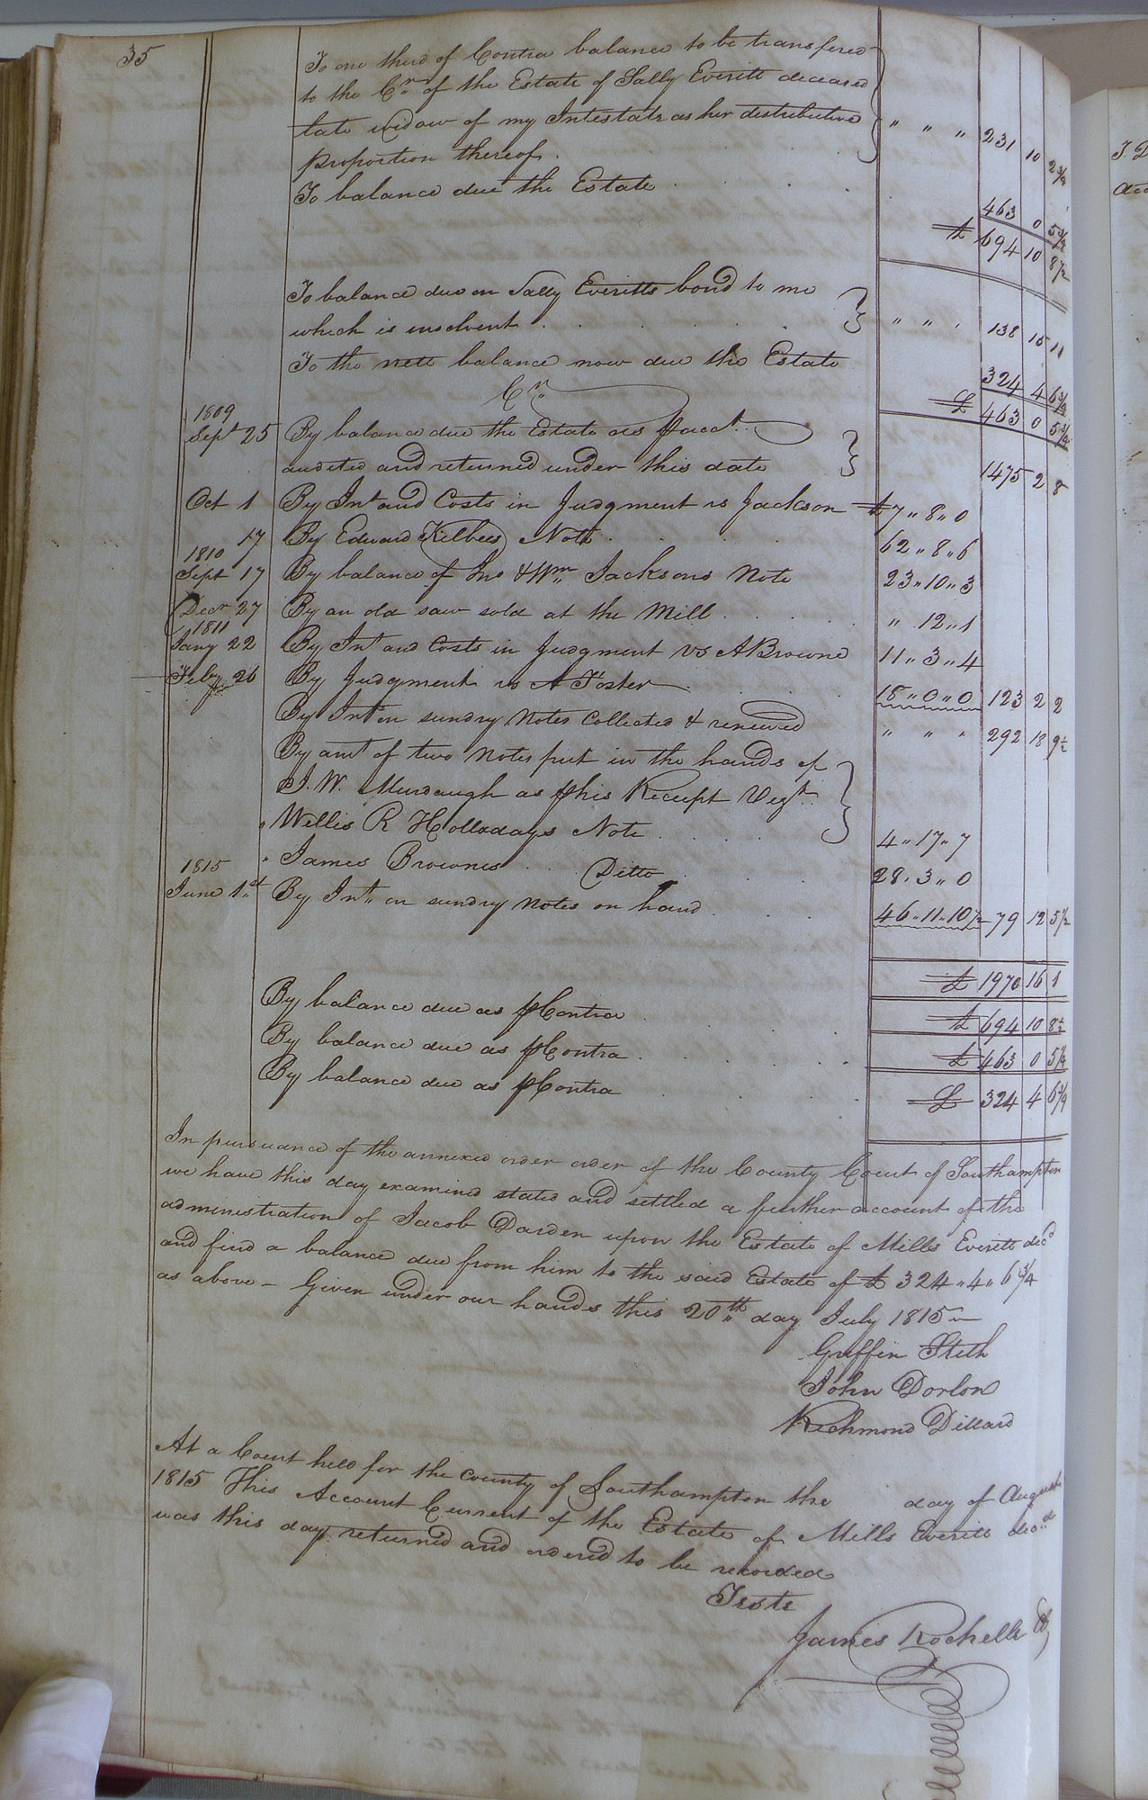 35
To one third of Contra balance to be transfered
to the Cr. of the Estate of Sally Everitt deceased
late widow of my Intestate as her distributive
proportion thereof. " " " 231 10 2 3/4
To balance due the Estate . . . 463 0 5 3/4
£ 694 10 8 1/2
To balance due on Sally Everitts bond to me
which is insolvent . . . " " " 138 15 11
To the nett balance now due the Estate 324 4 6 3/4
£ 463 0 5 3/4
Cr.
1809
Sept 25 By balance due the Estate as p acct.
audited and returned under this date 1475 2 8
Oct 1 By Int and Costs in Judgment vs Jackson £7 " 8 " 0
17 By Edward Kelbees Note . . . 62 " 8 " 6
1810
Sept 17 By balance of Jno & Wm Jacksons Note 23 " 10 " 3
Decr 27 By an old saw sold at the Mill . . . " 12 " 1
1811
Jany 22 By Int and Costs in Judgment vs A Browne 11 " 3 " 4
Feby 26 By Judgment vs A Foster . . . 18 " 0 " 0 123 2 2
By Int on sundry Notes Collected & renewed " " " 292 18 9 1/2
By amt of two Notes put in the hands of
J. W. Murdaugh as p his Receipt Vizt.
Willis R Holladays Note . . . 4 " 17 " 7
James Brownes . . Ditto 28 " 3 " 0
1815
June 1st By Int. on sundry Notes on hand . . . 46 " 11 " 10 1/2 79 12 5 1/2
£ 1970 16 1
By balance due as p Contra . . . £ 694 10 8 1/2
By balance due as p Contra . . . £ 463 0 5 3/4
By balance due as p Contra . . . £ 324 4 6 3/4
In pursuance of the annexed order order of the County Court of Southampton
we have this day examined stated and settled a further account of the
administration of Jacob Darden upon the Estate of Mills Everitt decd
and find a balance due from him to the said Estate of £ 324 " 4 " 6 3/4
as above – Given under our hands this 20th day July 1815 –
Griffin Stith
John Dorlon
Richmond Dillard
At a Court held for the County of Southampton the day of August
1815 This Account Current of the Estate of Mills Everitt decd
was this day returned and ordered to be recorded
Teste
James Rochelle